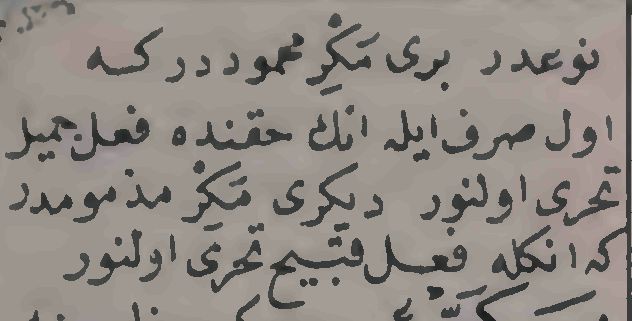 نوعدر بری مَكْرِ محمود در كه
اول صرف ايله انك حقنده فعل جميل
تحرى اولنور ديكرى مَكْرِ مذمومدر
كه انكله فعل قبيح تحرى اولنور